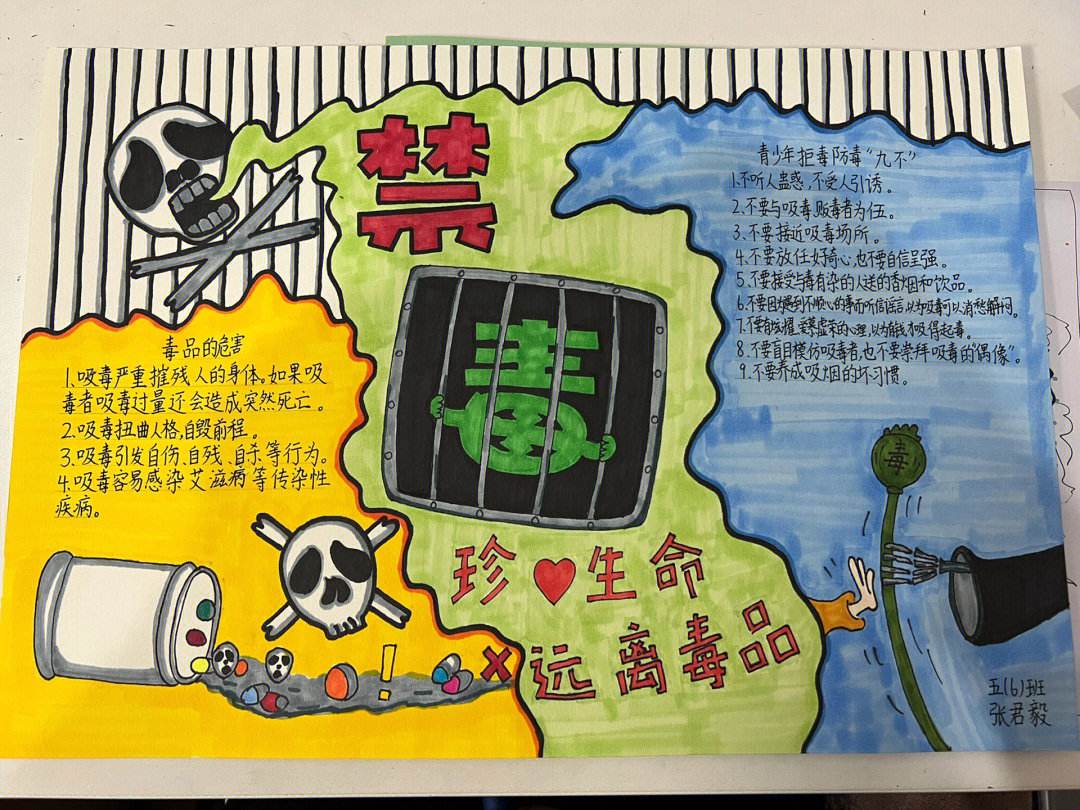 禁
毒
毒品的危害
1.吸毒严重摧残人的身体。如果吸
毒者吸毒过量还会造成突然死亡。
2.吸毒扭曲人格,自毁前程。
3.吸毒引发自伤、自残、自杀等行为。
4.吸毒容易感染艾滋病等传染性
疾病。
珍♥生命
远离毒品
青少年拒毒防毒“九不”
1.不听人蛊惑,不受人引诱。
2.不要与吸毒贩毒者为伍。
3.不要接近吸毒场所。
4.不要放任好奇心,也不要自信呈强。
5.不要接受与毒有染的人送的香烟和饮品。
6.不要因遇到不顺心的事而听信谣言,以为吸毒可以消愁解闷。
7.不要有炫耀、爱慕虚荣的心理,以为有钱才吸得起毒。
8.不要盲目模仿吸毒者,也不要崇拜吸毒的“偶像”。
9.不要养成吸烟的坏习惯。
毒
五(6)班
张君毅